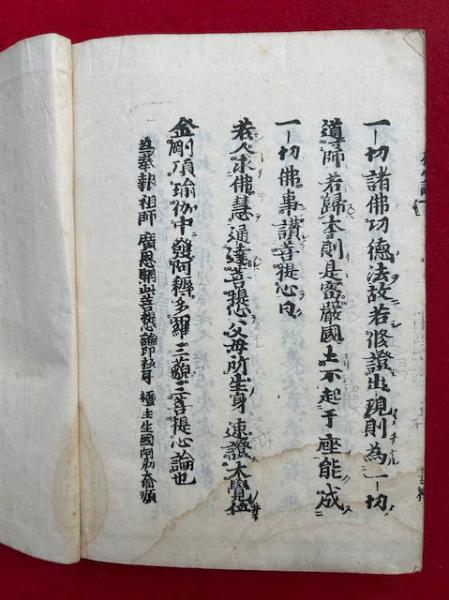 一切諸佛功德法故若修證出現則為一切
道師若歸本則是密嚴國土不起于座能成
一切佛事讃菩提心曰
若人求佛慧通達菩提心父母所生身速證大覺位
金剛頂瑜伽中發阿耨多羅三藐三菩提心論也
為奉報祖師廣恩開出菩提心論印